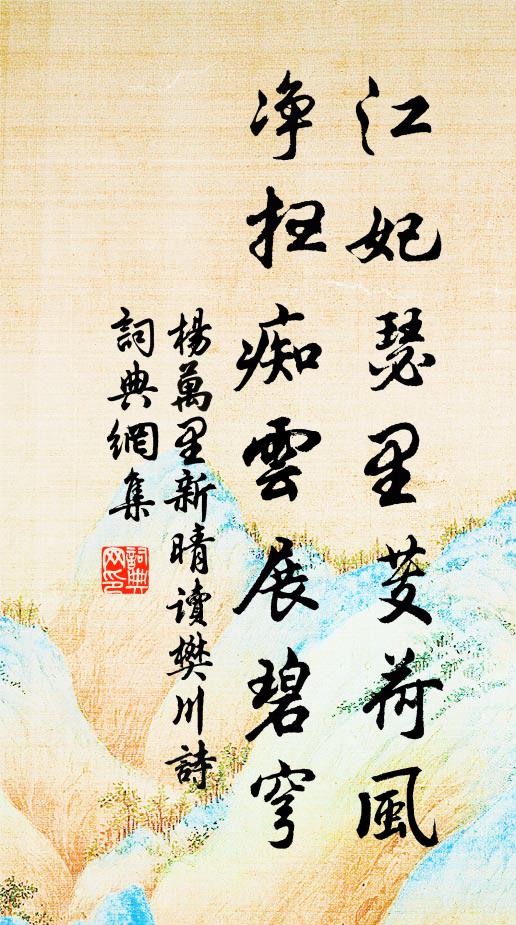 江妃瑟里芰荷風
净扫痴雲展碧穹
楊萬里新晴讀樊川詩
詞典網集
詞典網印